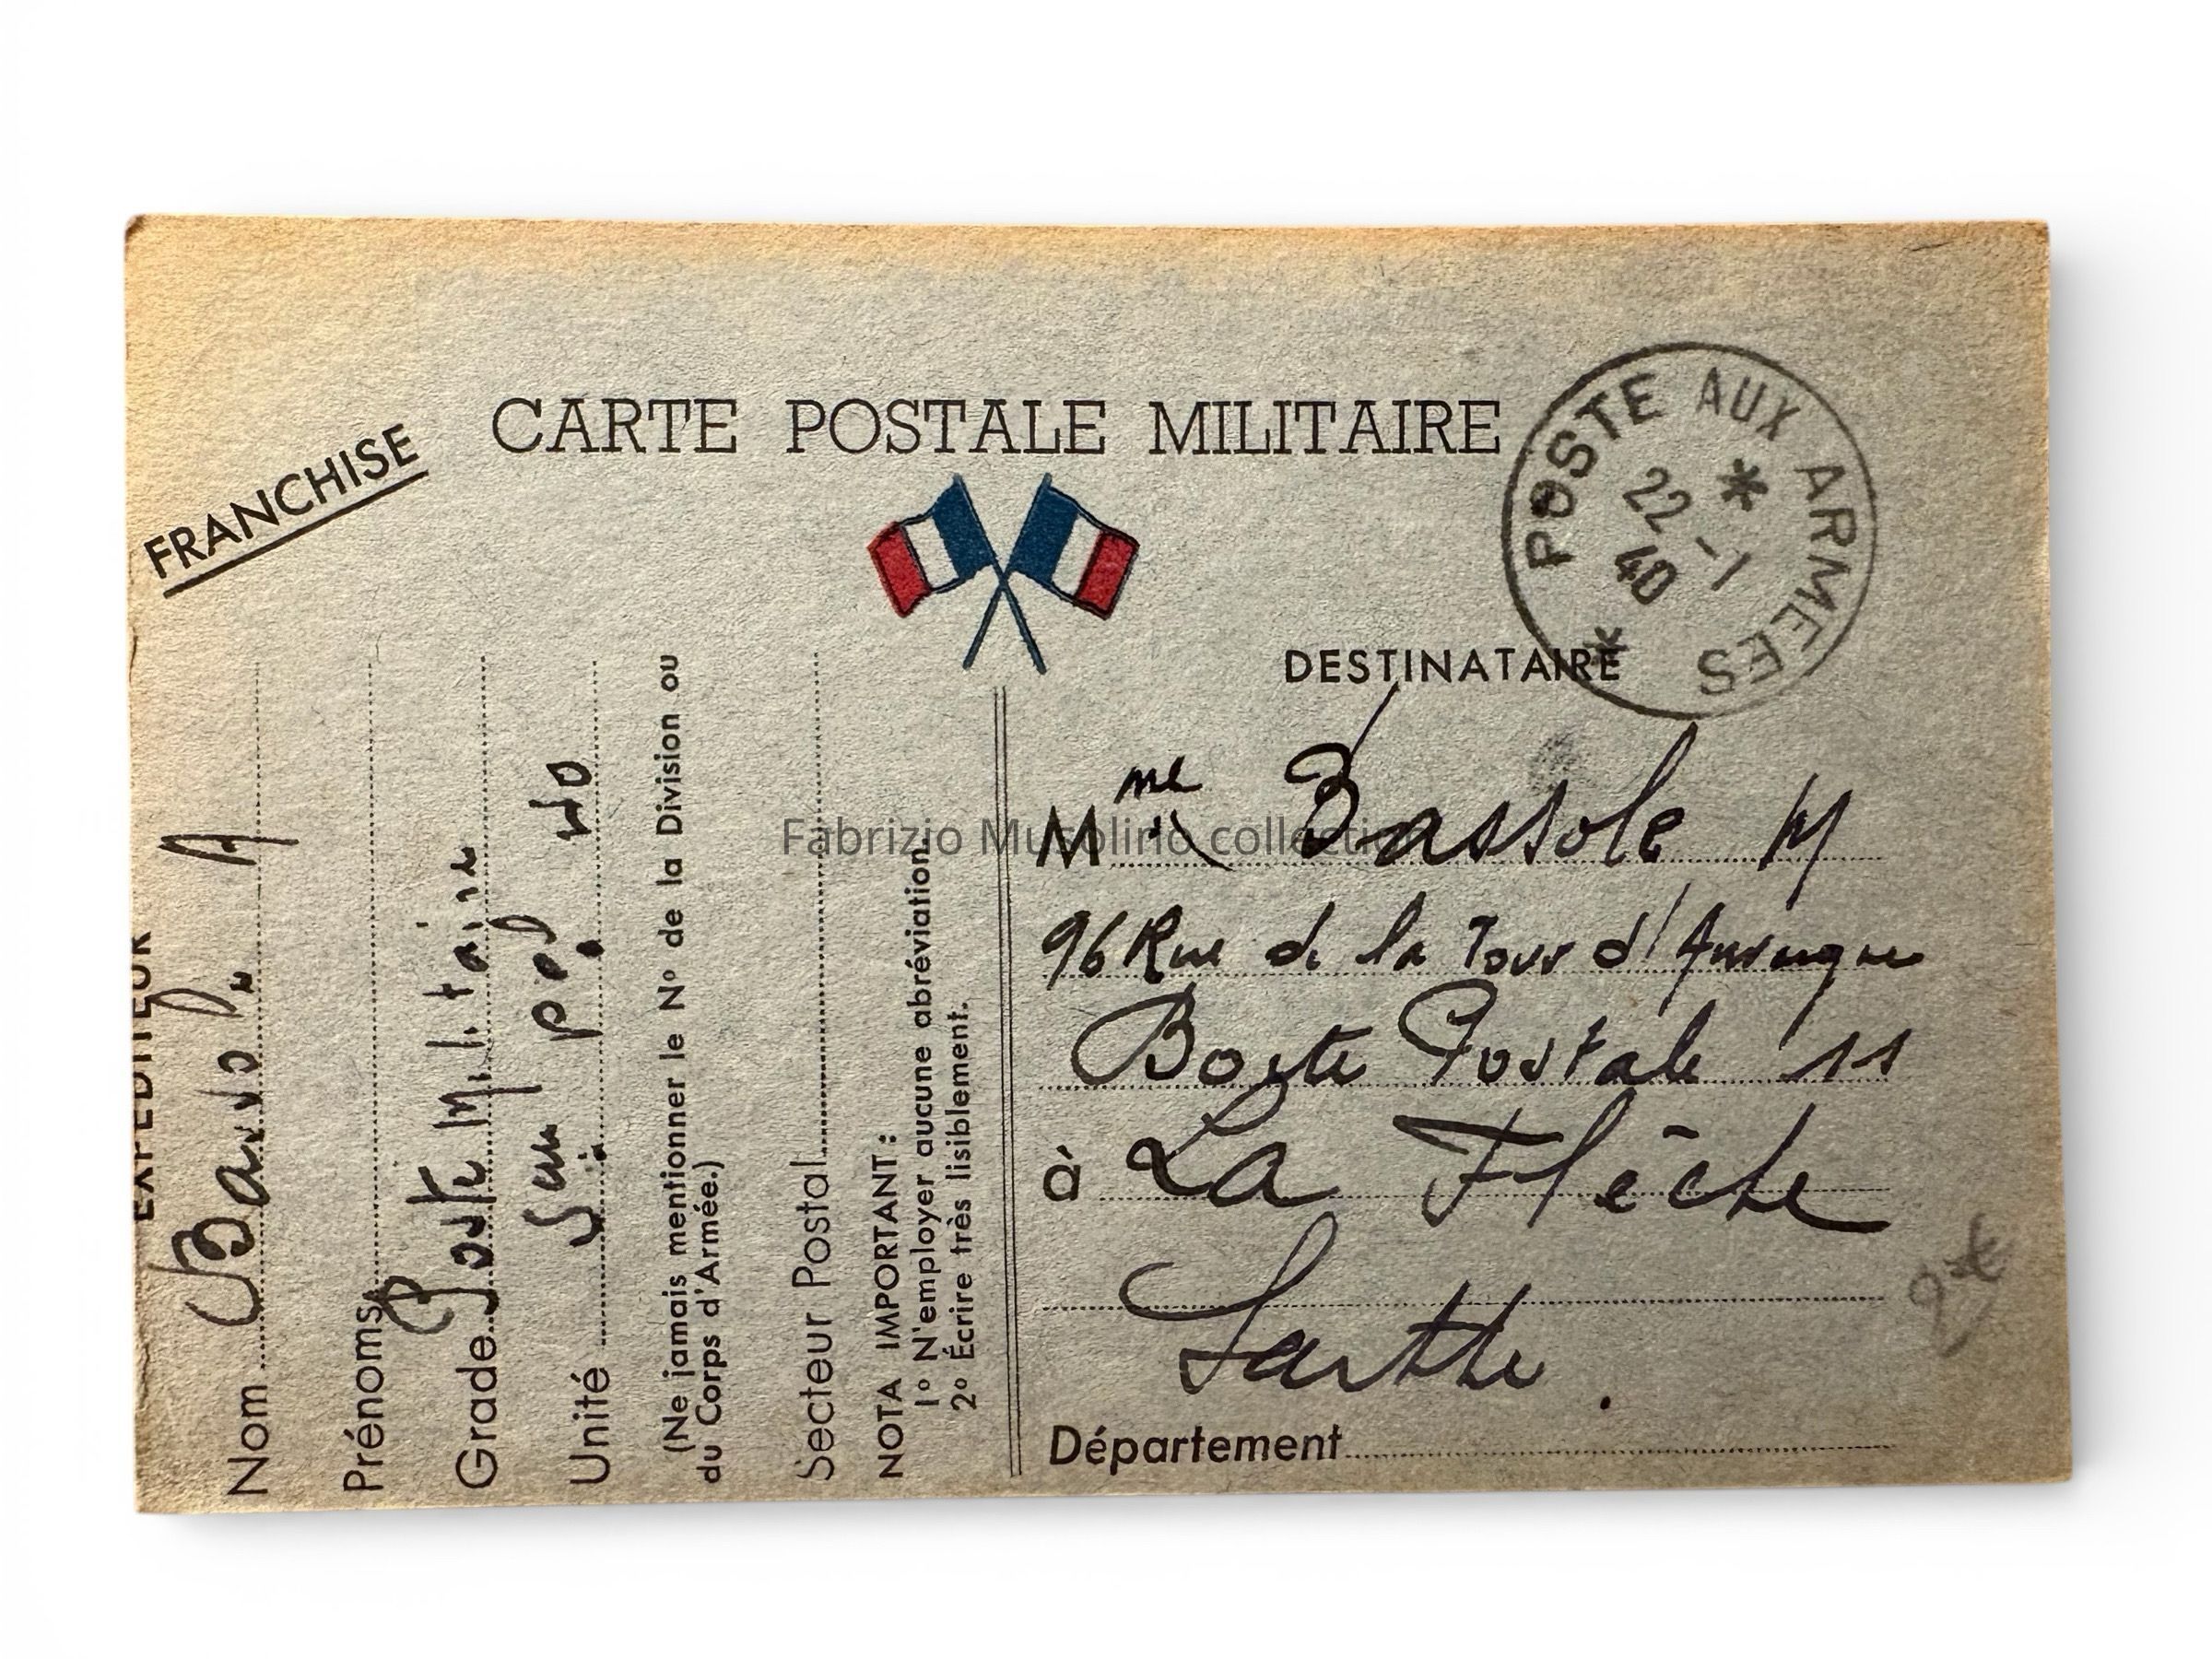 FRANCHISE
CARTE POSTALE MILITAIRE
POSTE AUX ARMEES
22 -1
40
EXPÉDITEUR
Nom Bassole A
Prénoms
Grade Poste Militaire
Unité Sect pos 40
(Ne jamais mentionner le Nº de la Division ou
du Corps d'Armée.)
Secteur Postal
NOTA IMPORTANT :
1º N'employer aucune abréviation.
2º Écrire très lisiblement.
DESTINATAIRE
Mme Bassole M
96 Rue de la Tour d'Auvergne
Boite Postale 11
à La Flèche
Sarthe.
Département
Fabrizio Musolino collection